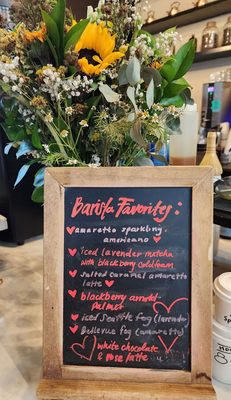 Barista Favorites:
amaretto sparkling
americano
iced lavender matcha
with blackberry coldfoam
salted caramel amaretto
latte
blackberry arnold
palmer
iced Seattle fog (lavender)
Bellevue fog (amaretto)
white chocolate
& rose latte